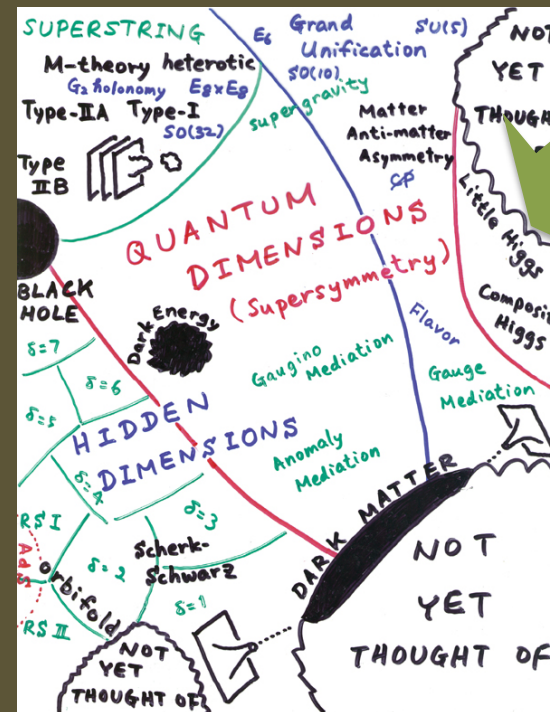 SUPERSTRING
M-theory heterotic
G₂ holonomy E₈×E₈
Type-IIA Type-I
SO(32)
Type
IIB
E₆ Grand
Unification
SU(5)
SO(10)
supergravity
Matter
Anti-matter
Asymmetry
CP
NOT
YET
Little Higgs
Higgs
QUANTUM
DIMENSIONS
(Supersymmetry)
BLACK
HOLE
Dark Energy
Flavor
Gaugino
Mediation
Gauge
Mediation
Anomaly
Mediation
HIDDEN
DIMENSIONS
δ=7
δ=6
δ=5
δ=4
δ=3
δ=2
δ=1
Scherk-
Schwarz
RS I
AdS
orbifold
RS II
DARK MATTER
NOT
YET
THOUGHT OF
NOT
YET
THOUGHT OF